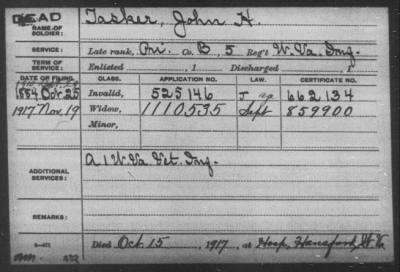 DEAD
NAME OF SOLDIER: Tasker, John H.
SERVICE: Late rank, Pvt. Co. B, 5 Reg't W. Va. Inf.
TERM OF SERVICE: Enlisted , 1 Discharged , 1
DATE OF FILING. CLASS. APPLICATION NO. LAW. CERTIFICATE NO.
1884 Oct 25 Invalid, 525146 J 662134
1917 Nov. 19 Widow, 1110535 Sept 859900
Minor,
ADDITIONAL SERVICES: A 1 W. Va. Vet. Inf.
REMARKS:
Died Oct. 15, 1917, at Hosp, Hansford, W. Va